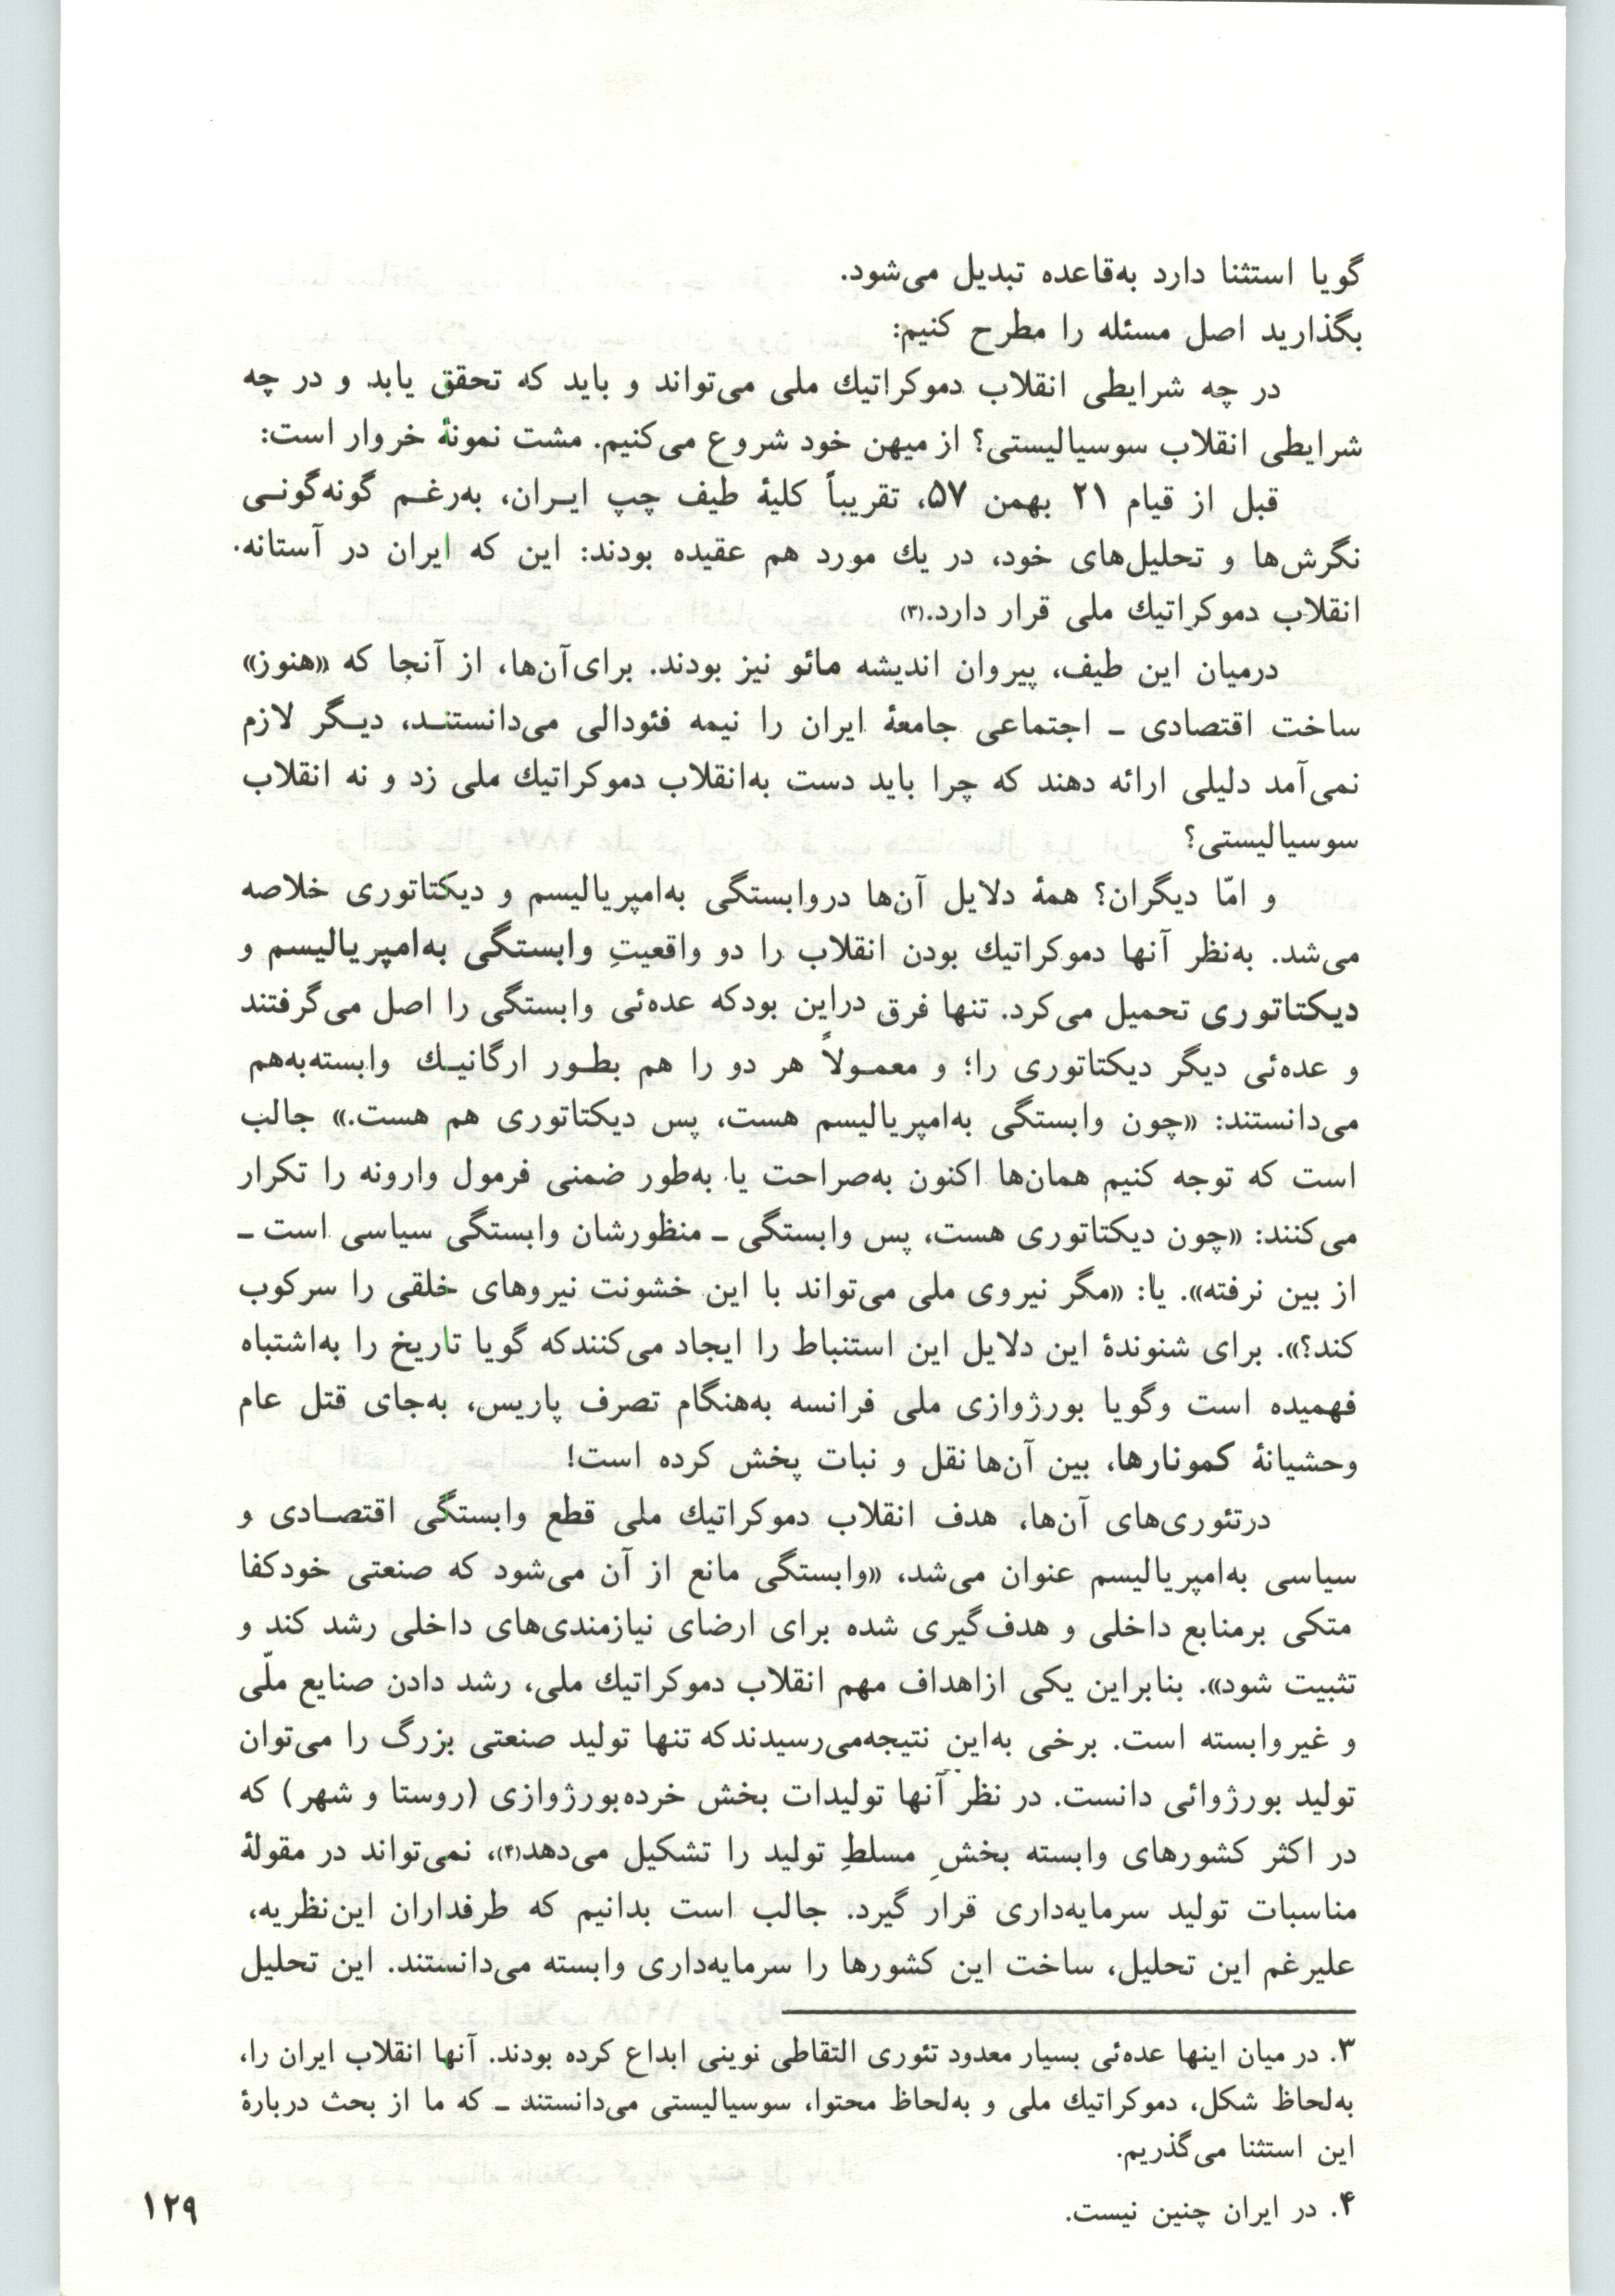 گویا استثنا دارد به‌قاعده تبدیل می‌شود.
بگذارید اصل مسئله را مطرح کنیم:
در چه شرایطی انقلاب دموکراتیك ملی می‌تواند و باید که تحقق یابد و در چه
شرایطی انقلاب سوسیالیستی؟ از میهن خود شروع می‌کنیم. مشت نمونهٔ خروار است:
قبل از قیام ۲۱ بهمن ۵۷، تقریباً کلیهٔ طیف چپ ایـران، به‌رغـم گونه‌گونـی
نگرش‌ها و تحلیل‌های خود، در یك مورد هم عقیده بودند: این که ایران در آستانه
انقلاب دموکراتیك ملی قرار دارد.(۳)
درمیان این طیف، پیروان اندیشه مائو نیز بودند. برای‌آن‌ها، از آنجا که «هنوز»
ساخت اقتصادی ـ اجتماعی جامعهٔ ایران را نیمه فئودالی می‌دانستنـد، دیـگر لازم
نمی‌آمد دلیلی ارائه دهند که چرا باید دست به‌انقلاب دموکراتیك ملی زد و نه انقلاب
سوسیالیستی؟
و امّا دیگران؟ همهٔ دلایل آن‌ها دروابستگی به‌امپریالیسم و دیکتاتوری خلاصه
می‌شد. به‌نظر آنها دموکراتیك بودن انقلاب را دو واقعیتِ وابستگی به‌امپریالیسم و
دیکتاتوری تحمیل می‌کرد. تنها فرق دراین بودکه عده‌ئی وابستگی را اصل می‌گرفتند
و عده‌ئی دیگر دیکتاتوری را؛ و معمـولاً هر دو را هم بطـور ارگانیـك وابسته‌به‌هم
می‌دانستند: «چون وابستگی به‌امپریالیسم هست، پس دیکتاتوری هم هست.» جالب
است که توجه کنیم همان‌ها اکنون به‌صراحت یا به‌طور ضمنی فرمول وارونه را تکرار
می‌کنند: «چون دیکتاتوری هست، پس وابستگی ـ منظورشان وابستگی سیاسی است ـ
از بین نرفته». یا: «مگر نیروی ملی می‌تواند با این خشونت نیروهای خلقی را سرکوب
کند؟». برای شنوندهٔ این دلایل این استنباط را ایجاد می‌کنندکه گویا تاریخ را به‌اشتباه
فهمیده است وگویا بورژوازی ملی فرانسه به‌هنگام تصرف پاریس، به‌جای قتل عام
وحشیانهٔ کمونارها، بین آن‌ها نقل و نبات پخش کرده است!
درتئوری‌های آن‌ها، هدف انقلاب دموکراتیك ملی قطع وابستگی اقتصـادی و
سیاسی به‌امپریالیسم عنوان می‌شد، «وابستگی مانع از آن می‌شود که صنعتی خودکفا
متکی برمنابع داخلی و هدف‌گیری شده برای ارضای نیازمندی‌های داخلی رشد کند و
تثبیت شود». بنابراین یکی ازاهداف مهم انقلاب دموکراتیك ملی، رشد دادن صنایع ملّی
و غیروابسته است. برخی به‌این نتیجه‌می‌رسیدندکه تنها تولید صنعتی بزرگ را می‌توان
تولید بورژوائی دانست. در نظر آنها تولیدات بخش خرده‌بورژوازی (روستا و شهر) که
در اکثر کشورهای وابسته بخشِ مسلطِ تولید را تشکیل می‌دهد(۴)، نمی‌تواند در مقولهٔ
مناسبات تولید سرمایه‌داری قرار گیرد. جالب است بدانیم که طرفداران این‌نظریه،
علیرغم این تحلیل، ساخت این کشورها را سرمایه‌داری وابسته می‌دانستند. این تحلیل
۳. در میان اینها عده‌ئی بسیار معدود تئوری التقاطی نوینی ابداع کرده بودند. آنها انقلاب ایران را،
به‌لحاظ شکل، دموکراتیك ملی و به‌لحاظ محتوا، سوسیالیستی می‌دانستند ـ که ما از بحث دربارهٔ
این استثنا می‌گذریم.
۴. در ایران چنین نیست.
۱۲۹